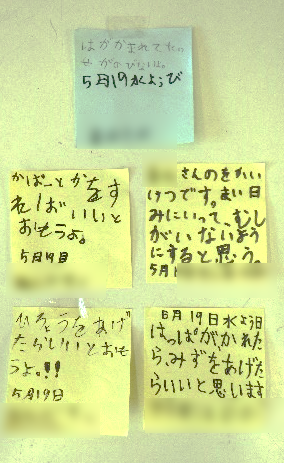 はがかまれてたっ
せがのびないよ。
5月19水ようび
かばーとかをす
ればいいと
おもうよ。
5月19日
さんのをかい
けつです。まい日
みにいって、むし
がいないよう
にすると思う。
5月
ひりょうをあげ
たらいいとおも
うよ。!!
5月19日
5月19日水よう日
はっぱがかれた
ら、みずをあげた
らいいと思います